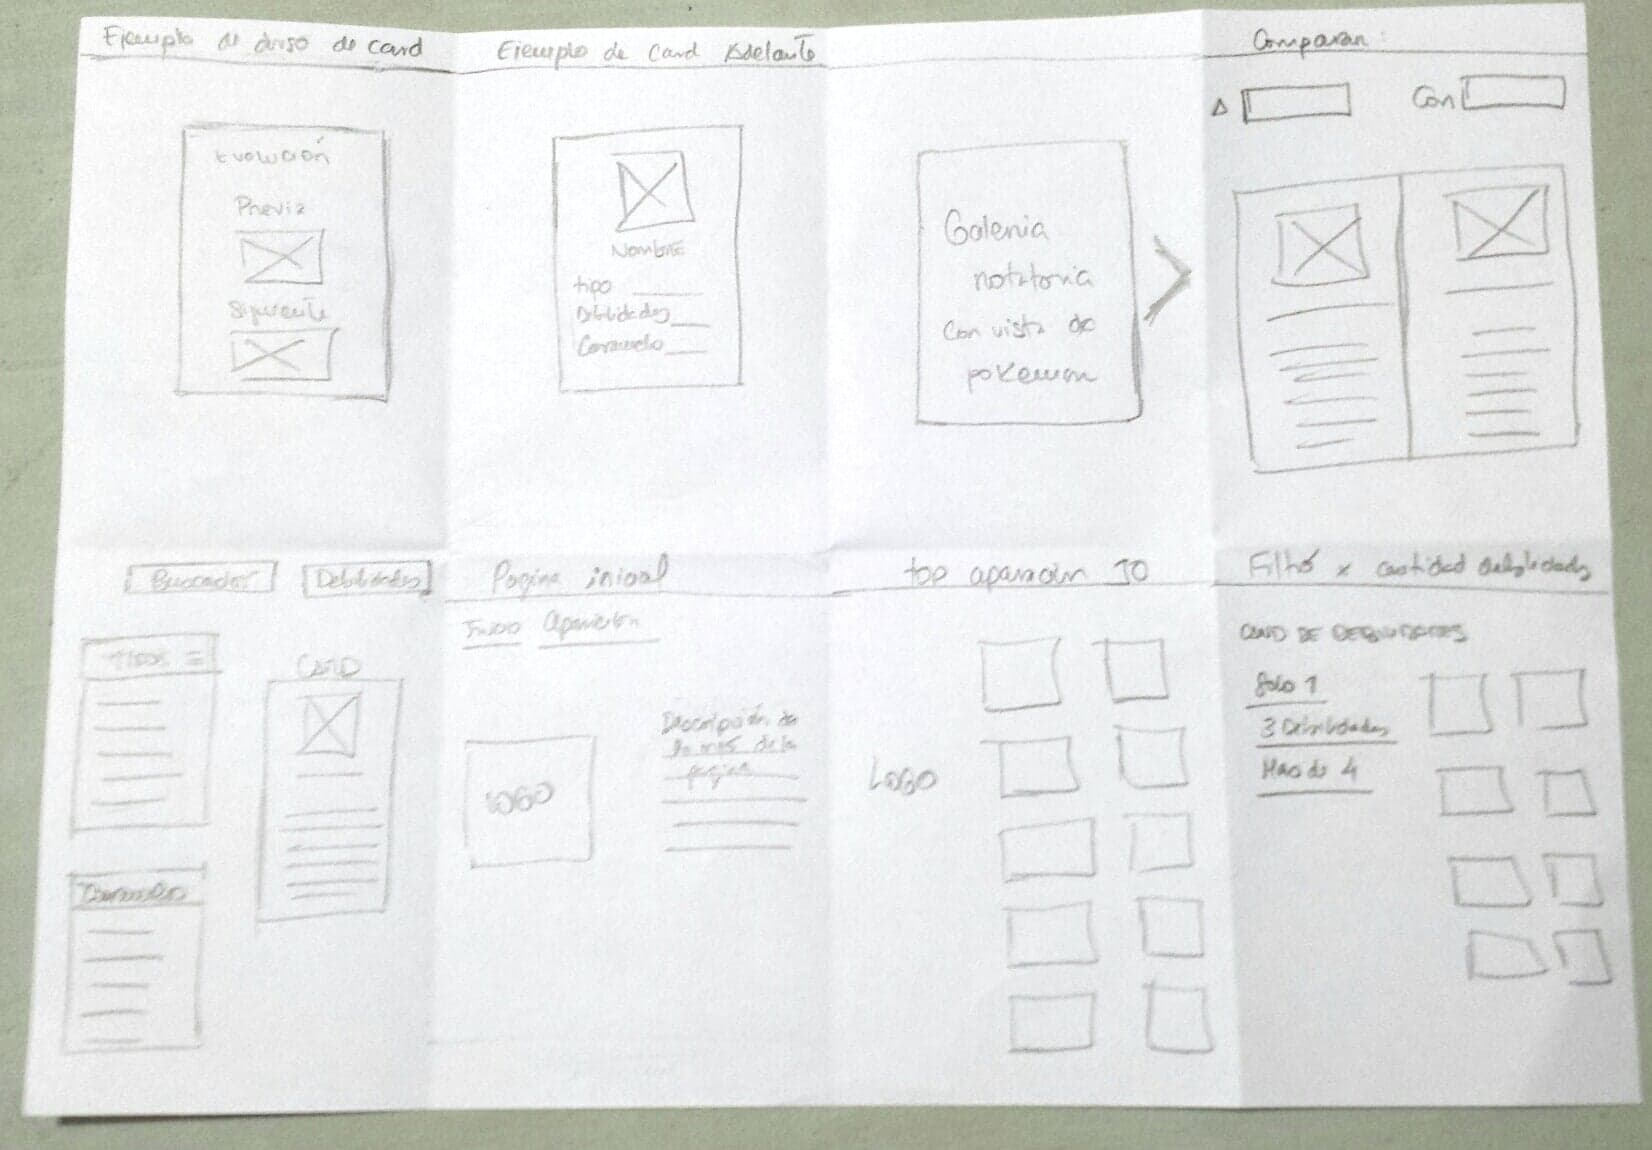 Ejemplo de dorso de card
Evolución
Previa
Siguiente
Ejemplo de card Adelante
Nombre
tipo
Debilidades
Caramelo
Galeria
rotatoria
con vista de
pokemon
Comparar:
A
Con
Buscador
Debilidades
tipos
CARD
Caramelos
Pagina inicial
Inicio Aparición
LOGO
Descripción de
lo mas de la
pagina
top aparición 10
LOGO
Filtro x cantidad debilidades
CANT DE DEBILIDADES
Solo 1
3 Debilidades
Mas de 4